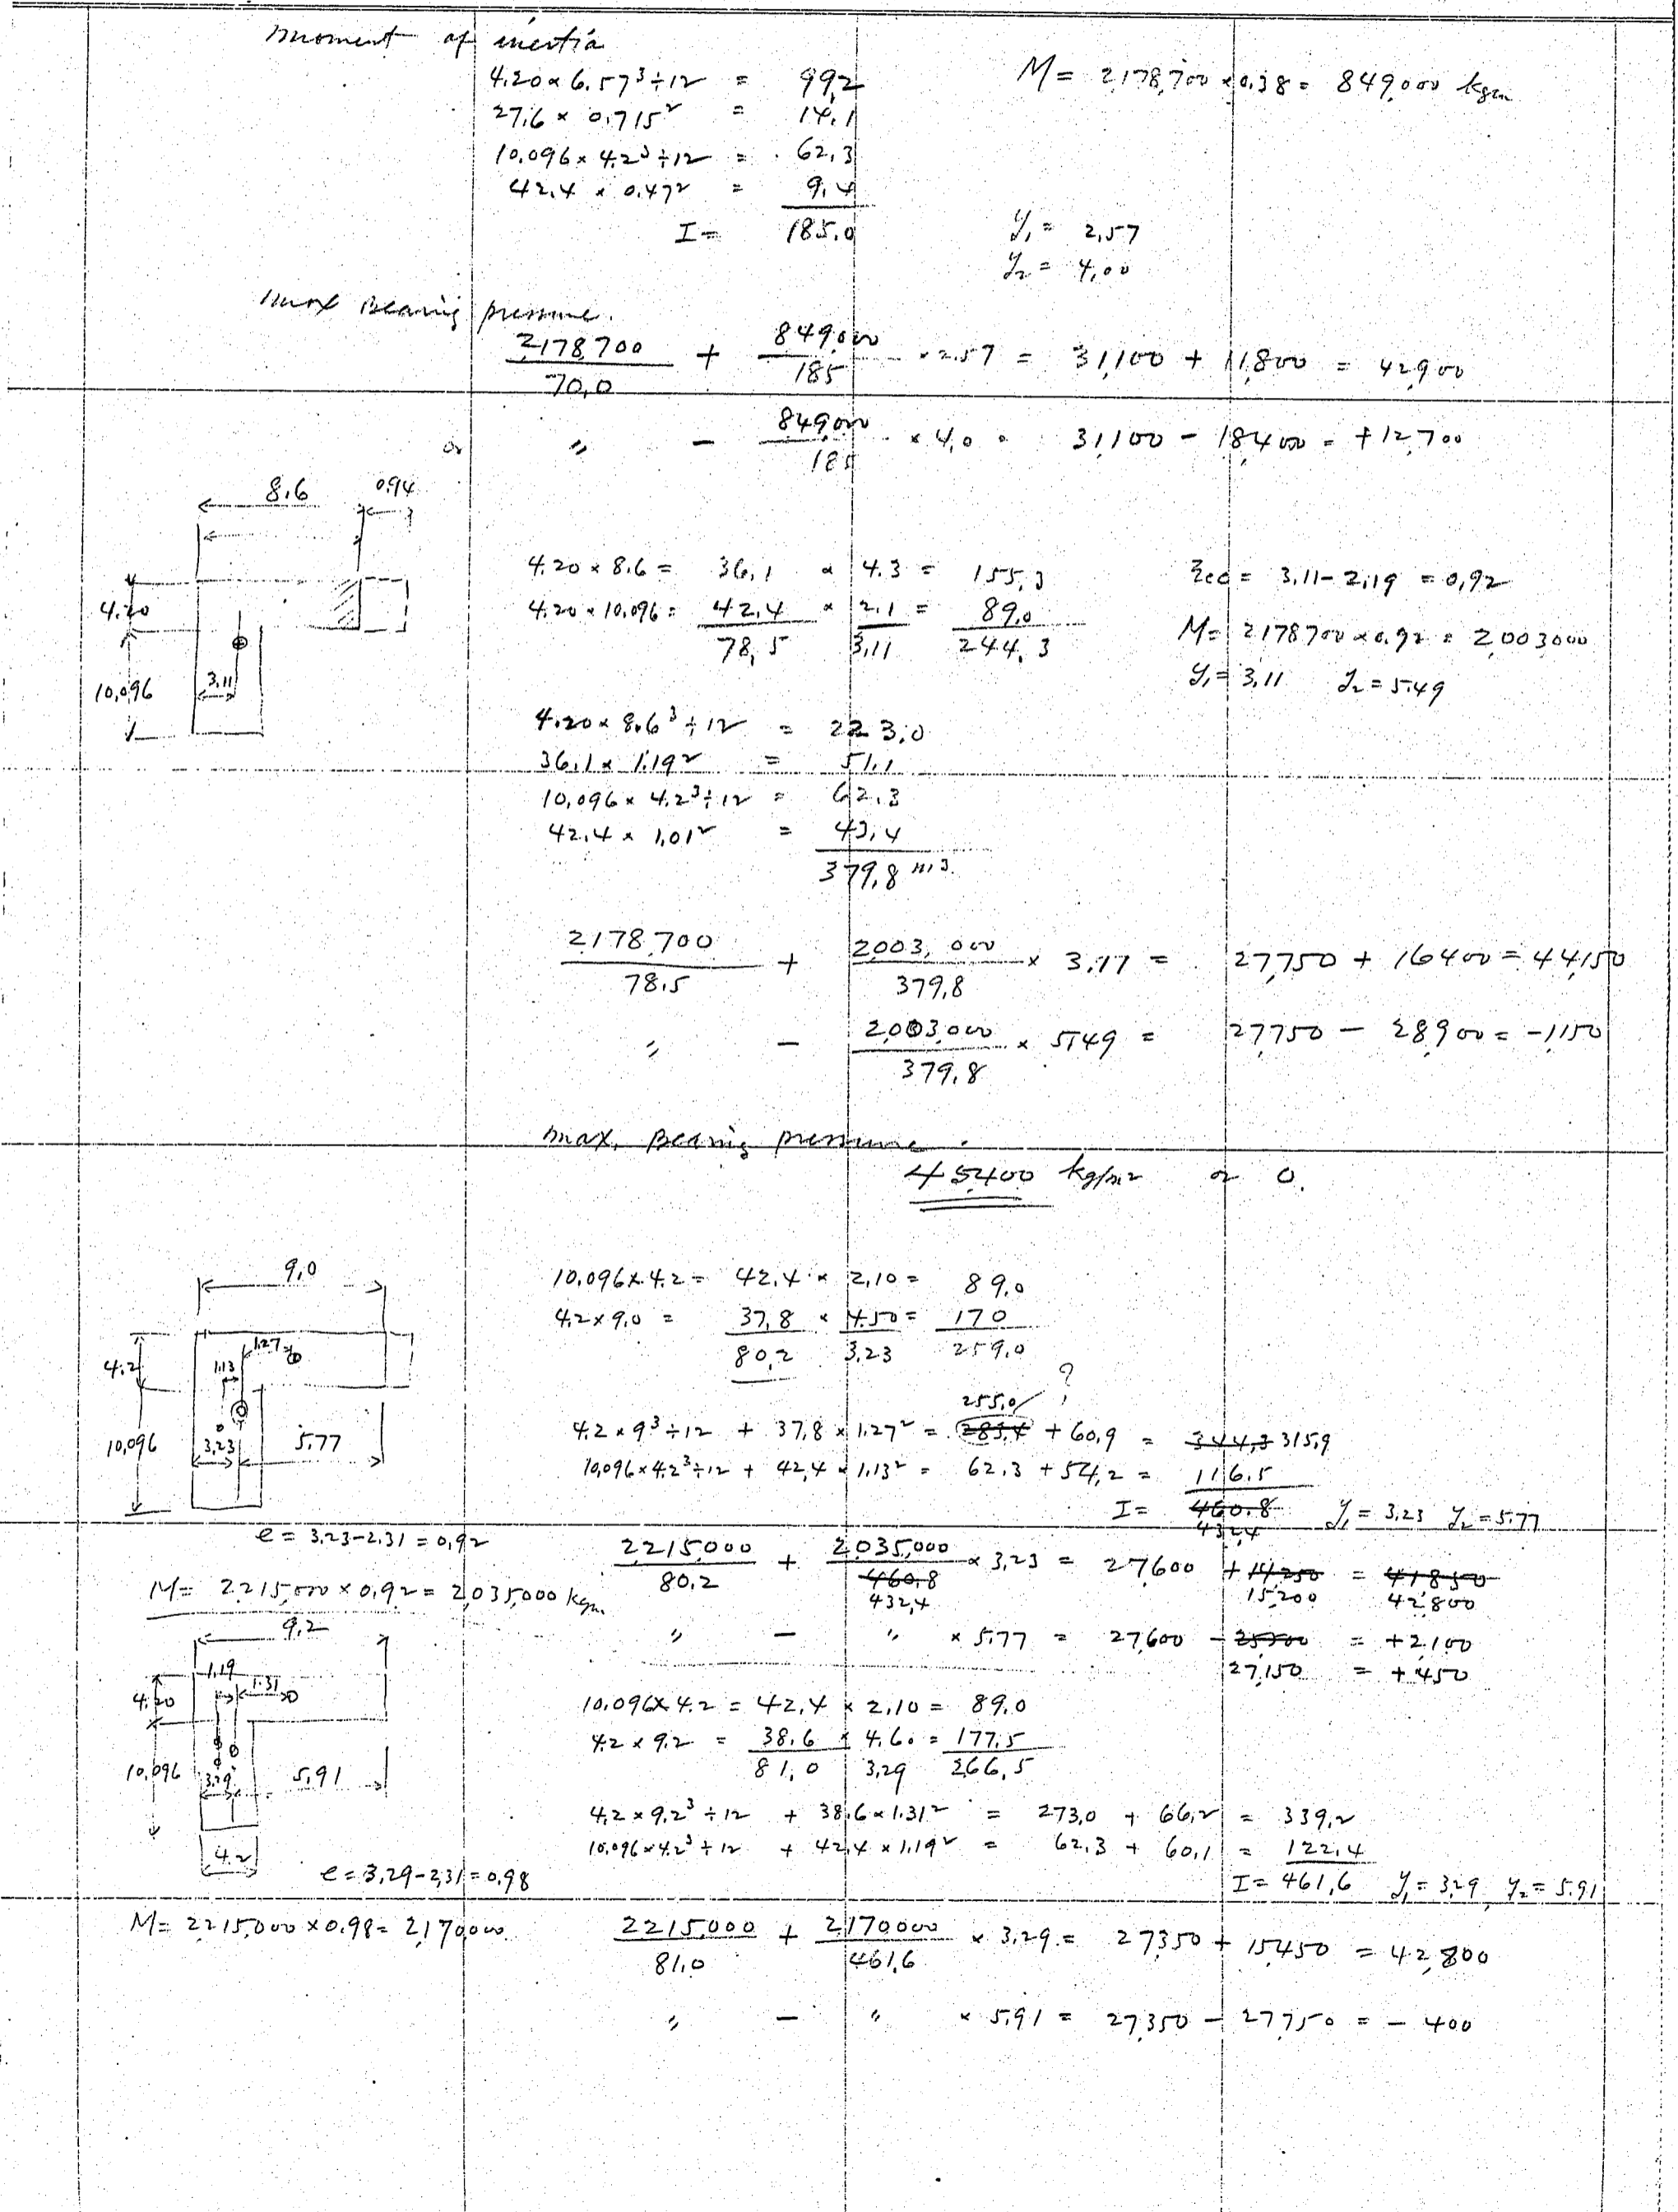 Moment of inertia
4.20 × 6.57³ ÷ 12 = 99,2
M = 2,178,700 × 0.38 = 849,000 kgm
27.6 × 0.715² = 14.1
10.096 × 4.2³ ÷ 12 = 62.3
42.4 × 0.47² = 9.4
I = 185.0
y₁ = 2.57
y₂ = 4.00
Max Bearing pressure.
2,178,700 / 70.0 + 849,000 / 185 × 2.57 = 31,100 + 11,800 = 42,900
or " - 849,000 / 185 × 4.0 = 31,100 - 18,400 = +12,700
8.6 0.94
4.20
10.096 3.11
4.20 × 8.6 = 36.1 × 4.3 = 155.3
4.20 × 10.096 = 42.4 × 2.1 = 89.0
78.5 3.11 244.3
= 3.11 - 2.19 = 0.92
M = 2178700 × 0.92 = 2,003,000
y₁ = 3.11 y₂ = 5.49
4.20 × 8.6³ ÷ 12 = 223.0
36.1 × 1.19² = 51.1
10.096 × 4.2³ ÷ 12 = 62.3
42.4 × 1.01² = 43.4
379.8
2,178,700 / 78.5 + 2,003,000 / 379.8 × 3.11 = 27,750 + 16400 = 44,150
" - 2,003,000 / 379.8 × 5.49 = 27,750 - 28,900 = -1,150
max. Bearing pressure.
45,400 kg/m² or 0.
9.0
4.2 1.13 1.27
10.096 3.23 5.77
10.096 × 4.2 = 42.4 × 2.10 = 89.0
4.2 × 9.0 = 37.8 × 4.50 = 170
80.2 3.23 259.0
255.0 ?
4.2 × 9³ ÷ 12 + 37.8 × 1.27² = 283.4 + 60.9 = 344.3 315.9
10.096 × 4.2³ ÷ 12 + 42.4 × 1.13² = 62.3 + 54.2 = 116.5
I = 460.8 y₁ = 3.23 y₂ = 5.77
432.4
e = 3.23 - 2.31 = 0.92
M = 2,215,000 × 0.92 = 2,035,000 kgm
2,215,000 / 80.2 + 2,035,000 / 460.8 × 3.23 = 27,600 + 14,250 = 41,850
432.4 15,200 42,800
" - " × 5.77 = 27,600 - 25,500 = +2,100
27,150 = +450
9.2
1.19 1.31
4.20
10.096 3.29 5.91
4.2
10.096 × 4.2 = 42.4 × 2.10 = 89.0
4.2 × 9.2 = 38.6 × 4.60 = 177.5
81.0 3.29 266.5
4.2 × 9.2³ ÷ 12 + 38.6 × 1.31² = 273.0 + 66.2 = 339.2
10.096 × 4.2³ ÷ 12 + 42.4 × 1.19² = 62.3 + 60.1 = 122.4
I = 461.6 y₁ = 3.29 y₂ = 5.91
e = 3.29 - 2.31 = 0.98
M = 2,215,000 × 0.98 = 2,170,000
2,215,000 / 81.0 + 2,170,000 / 461.6 × 3.29 = 27,350 + 15,450 = 42,800
" - " × 5.91 = 27,350 - 27,750 = - 400